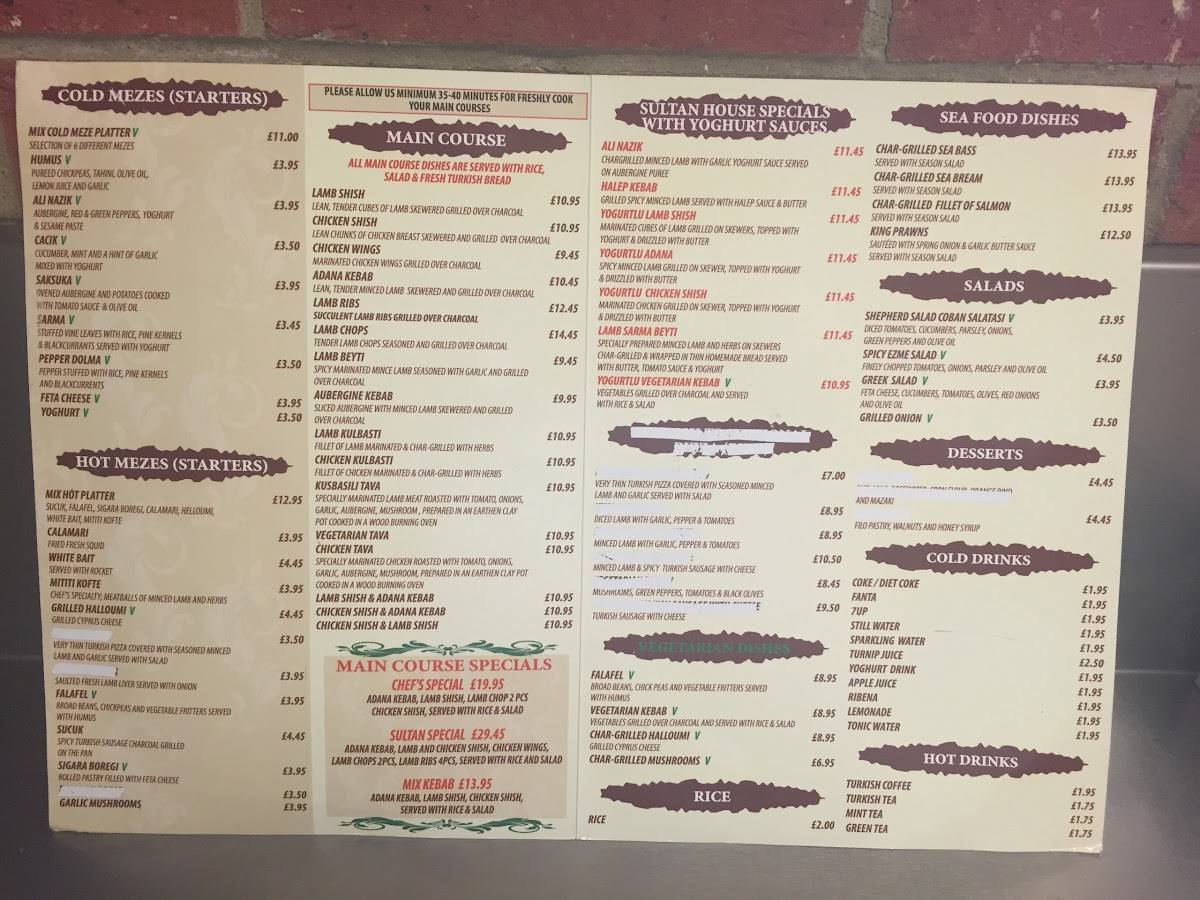 COLD MEZES (STARTERS)
MIX COLD MEZE PLATTER V £11.00
SELECTION OF 6 DIFFERENT MEZES
HUMUS V £3.95
PUREED CHICKPEAS, TAHINI, OLIVE OIL,
LEMON JUICE AND GARLIC
ALI NAZIK V £3.95
AUBERGINE, RED & GREEN PEPPERS, YOGHURT
& SESAME PASTE
CACIK V £3.50
CUCUMBER, MINT AND A HINT OF GARLIC
MIXED WITH YOGHURT
SAKSUKA V £3.95
OVENED AUBERGINE AND POTATOES COOKED
WITH TOMATO SAUCE & OLIVE OIL
SARMA V £3.45
STUFFED VINE LEAVES WITH RICE, PINE KERNELS
& BLACKCURRANTS SERVED WITH YOGHURT
PEPPER DOLMA V £3.50
PEPPER STUFFED WITH RICE, PINE KERNELS
AND BLACKCURRENTS
FETA CHEESE V £3.95
YOGHURT V £3.50
HOT MEZES (STARTERS)
MIX HOT PLATTER £12.95
SUCUK, FALAFEL, SIGARA BOREGI, CALAMARI, HELLOUMI,
WHITE BAIT, MITITI KOFTE
CALAMARI £3.95
FRIED FRESH SQUID
WHITE BAIT £4.45
SERVED WITH ROCKET
MITITI KOFTE £3.95
CHEF'S SPECIALTY; MEATBALLS OF MINCED LAMB AND HERBS
GRILLED HALLOUMI V £4.45
GRILLED CYPRUS CHEESE
£3.50
VERY THIN TURKISH PIZZA COVERED WITH SEASONED MINCED
LAMB AND GARLIC SERVED WITH SALAD
£3.95
SAULTED FRESH LAMB LIVER SERVED WITH ONION
FALAFEL V £3.95
BROAD BEANS, CHICKPEAS AND VEGETABLE FRITTERS SERVED
WITH HUMUS
SUCUK £4.45
SPICY TURKISH SAUSAGE CHARCOAL GRILLED
ON THE PAN
SIGARA BOREGI V £3.95
ROLLED PASTRY FILLED WITH FETA CHEESE
£3.50
GARLIC MUSHROOMS £3.95
PLEASE ALLOW US MINIMUM 35-40 MINUTES FOR FRESHLY COOK
YOUR MAIN COURSES
MAIN COURSE
ALL MAIN COURSE DISHES ARE SERVED WITH RICE,
SALAD & FRESH TURKISH BREAD
LAMB SHISH £10.95
LEAN, TENDER CUBES OF LAMB SKEWERED GRILLED OVER CHARCOAL
CHICKEN SHISH £10.95
LEAN CHUNKS OF CHICKEN BREAST SKEWERED AND GRILLED OVER CHARCOAL
CHICKEN WINGS £9.45
MARINATED CHICKEN WINGS GRILLED OVER CHARCOAL
ADANA KEBAB £10.45
LEAN, TENDER MINCED LAMB SKEWERED AND GRILLED OVER CHARCOAL
LAMB RIBS £12.45
SUCCULENT LAMB RIBS GRILLED OVER CHARCOAL
LAMB CHOPS £14.45
TENDER LAMB CHOPS SEASONED AND GRILLED OVER CHARCOAL
LAMB BEYTI £9.45
SPICY MARINATED MINCE LAMB SEASONED WITH GARLIC AND GRILLED
OVER CHARCOAL
AUBERGINE KEBAB £9.95
SLICED AUBERGINE WITH MINCED LAMB SKEWERED AND GRILLED
OVER CHARCOAL
LAMB KULBASTI £10.95
FILLET OF LAMB MARINATED & CHAR-GRILLED WITH HERBS
CHICKEN KULBASTI £10.95
FILLET OF CHICKEN MARINATED & CHAR-GRILLED WITH HERBS
KUSBASILI TAVA £10.95
SPECIALLY MARINATED LAMB MEAT ROASTED WITH TOMATO, ONIONS,
GARLIC, AUBERGINE, MUSHROOM , PREPARED IN AN EARTHEN CLAY
POT COOKED IN A WOOD BURNING OVEN
VEGETARIAN TAVA £10.95
CHICKEN TAVA £10.95
SPECIALLY MARINATED CHICKEN ROASTED WITH TOMATO, ONIONS,
GARLIC, AUBERGINE, MUSHROOM, PREPARED IN AN EARTHEN CLAY POT
COOKED IN A WOOD BURNING OVEN
LAMB SHISH & ADANA KEBAB £10.95
CHICKEN SHISH & ADANA KEBAB £10.95
CHICKEN SHISH & LAMB SHISH £10.95
MAIN COURSE SPECIALS
CHEF'S SPECIAL £19.95
ADANA KEBAB, LAMB SHISH, LAMB CHOP 2 PCS
CHICKEN SHISH, SERVED WITH RICE & SALAD
SULTAN SPECIAL £29.45
ADANA KEBAB, LAMB AND CHICKEN SHISH, CHICKEN WINGS,
LAMB CHOPS 2PCS, LAMB RIBS 4PCS, SERVED WITH RICE AND SALAD
MIX KEBAB £13.95
ADANA KEBAB, LAMB SHISH, CHICKEN SHISH,
SERVED WITH RICE & SALAD
SULTAN HOUSE SPECIALS
WITH YOGHURT SAUCES
ALI NAZIK £11.45
CHARGRILLED MINCED LAMB WITH GARLIC YOGHURT SAUCE SERVED
ON AUBERGINE PUREE
HALEP KEBAB £11.45
GRILLED SPICY MINCED LAMB SERVED WITH HALEP SAUCE & BUTTER
YOGURTLU LAMB SHISH £11.45
MARINATED CUBES OF LAMB GRILLED ON SKEWERS, TOPPED WITH
YOGHURT & DRIZZLED WITH BUTTER
YOGURTLU ADANA £11.45
SPICY MINCED LAMB GRILLED ON SKEWER, TOPPED WITH YOGHURT
& DRIZZLED WITH BUTTER
YOGURTLU CHICKEN SHISH £11.45
MARINATED CHICKEN GRILLED ON SKEWER, TOPPED WITH YOGHURT
& DRIZZLED WITH BUTTER
LAMB SARMA BEYTI £11.45
SPECIALLY PREPARED MINCED LAMB AND HERBS ON SKEWERS
CHAR-GRILLED & WRAPPED IN THIN HOMEMADE BREAD SERVED
WITH BUTTER, TOMATO SAUCE & YOGHURT
YOGURTLU VEGETARIAN KEBAB V £10.95
VEGETABLES GRILLED OVER CHARCOAL AND SERVED
WITH RICE & SALAD
£7.00
VERY THIN TURKISH PIZZA COVERED WITH SEASONED MINCED
LAMB AND GARLIC SERVED WITH SALAD
£8.95
DICED LAMB WITH GARLIC, PEPPER & TOMATOES
£8.95
MINCED LAMB WITH GARLIC, PEPPER & TOMATOES
£10.50
MINCED LAMB & SPICY TURKISH SAUSAGE WITH CHEESE
£8.45
MUSHROOMS, GREEN PEPPERS, TOMATOES & BLACK OLIVES
£9.50
TURKISH SAUSAGE WITH CHEESE
VEGETARIAN DISHES
FALAFEL V £8.95
BROAD BEANS, CHICK PEAS AND VEGETABLE FRITTERS SERVED
WITH HUMUS
VEGETARIAN KEBAB V £8.95
VEGETABLES GRILLED OVER CHARCOAL AND SERVED WITH RICE & SALAD
CHAR-GRILLED HALLOUMI V £8.95
GRILLED CYPRUS CHEESE
CHAR-GRILLED MUSHROOMS V £6.95
RICE
RICE £2.00
SEA FOOD DISHES
CHAR-GRILLED SEA BASS £13.95
SERVED WITH SEASON SALAD
CHAR-GRILLED SEA BREAM £13.95
SERVED WITH SEASON SALAD
CHAR-GRILLED FILLET OF SALMON £13.95
SERVED WITH SEASON SALAD
KING PRAWNS £12.50
SAUTÉED WITH SPRING ONION & GARLIC BUTTER SAUCE
SERVED WITH SEASON SALAD
SALADS
SHEPHERD SALAD COBAN SALATASI V £3.95
DICED TOMATOES, CUCUMBERS, PARSLEY, ONIONS,
GREEN PEPPERS AND OLIVE OIL
SPICY EZME SALAD V £4.50
FINELY CHOPPED TOMATOES, ONIONS, PARSLEY AND OLIVE OIL
GREEK SALAD V £3.95
FETA CHEESE, CUCUMBERS, TOMATOES, OLIVES, RED ONIONS
AND OLIVE OIL
GRILLED ONION V £3.50
DESSERTS
£4.45
AND MAZAKI
£4.45
FILO PASTRY, WALNUTS AND HONEY SYRUP
COLD DRINKS
COKE / DIET COKE £1.95
FANTA £1.95
7UP £1.95
STILL WATER £1.95
SPARKLING WATER £1.95
TURNIP JUICE £2.50
YOGHURT DRINK £1.95
APPLE JUICE £1.95
RIBENA £1.95
LEMONADE £1.95
TONIC WATER £1.95
HOT DRINKS
TURKISH COFFEE £1.95
TURKISH TEA £1.75
MINT TEA £1.75
GREEN TEA £1.75